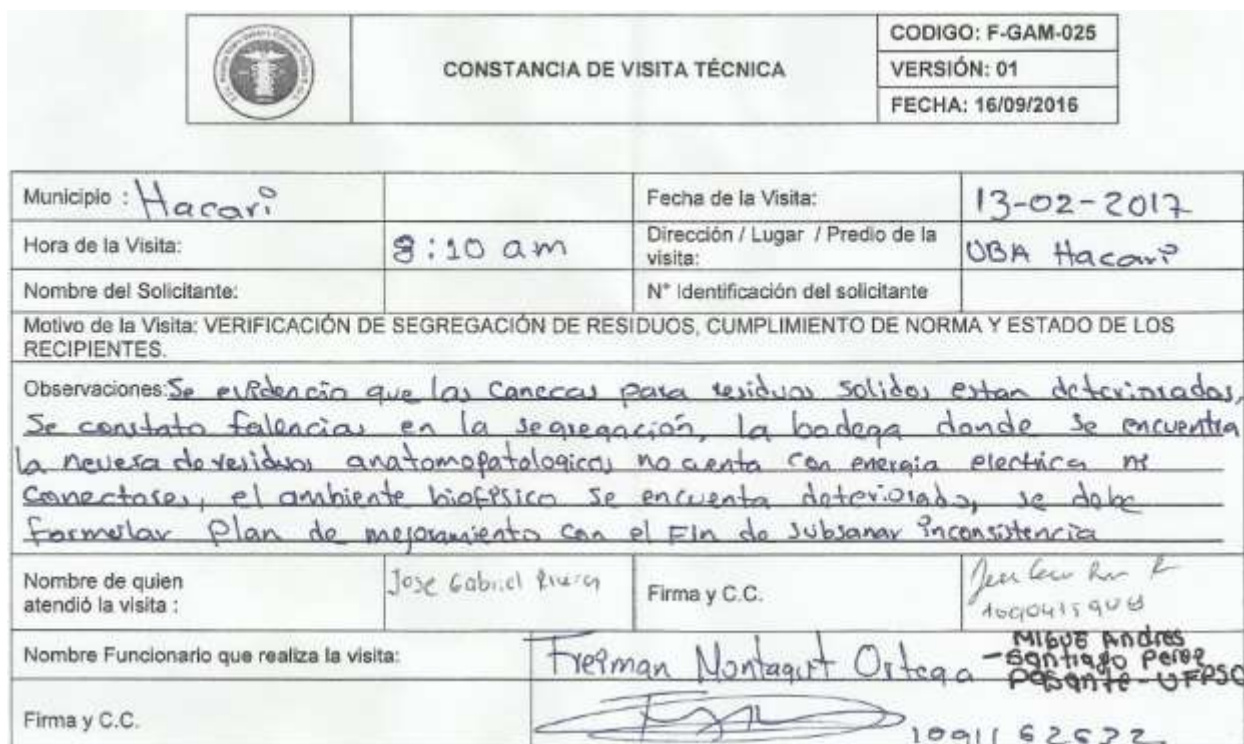 CONSTANCIA DE VISITA TÉCNICA
CODIGO: F-GAM-025
VERSIÓN: 01
FECHA: 16/09/2016
Municipio : Hacari
Fecha de la Visita: 13-02-2017
Hora de la Visita: 8:10 am
Dirección / Lugar / Predio de la visita: UBA Hacari
Nombre del Solicitante:
N° Identificación del solicitante
Motivo de la Visita: VERIFICACIÓN DE SEGREGACIÓN DE RESIDUOS, CUMPLIMIENTO DE NORMA Y ESTADO DE LOS
RECIPIENTES.
Observaciones: Se evidencia que las canecas para residuos solidos estan deteriorados,
Se constato falencias en la segregación, la bodega donde se encuentra
la nevera de residuos anatomopatologicos no cuenta con energia electrica ni
Conectores, el ambiente biofisico se encuenta deteriorado, se debe
formular Plan de mejoramiento con el Fin de subsanar inconsistencia
Nombre de quien
atendió la visita :
Jose Gabriel Rivera
Firma y C.C.
Nombre Funcionario que realiza la visita: Freiman Montagut Ortega
MIGUE Andres
Santiago Perez
Pasante - UFPSO
Firma y C.C.
1091162632